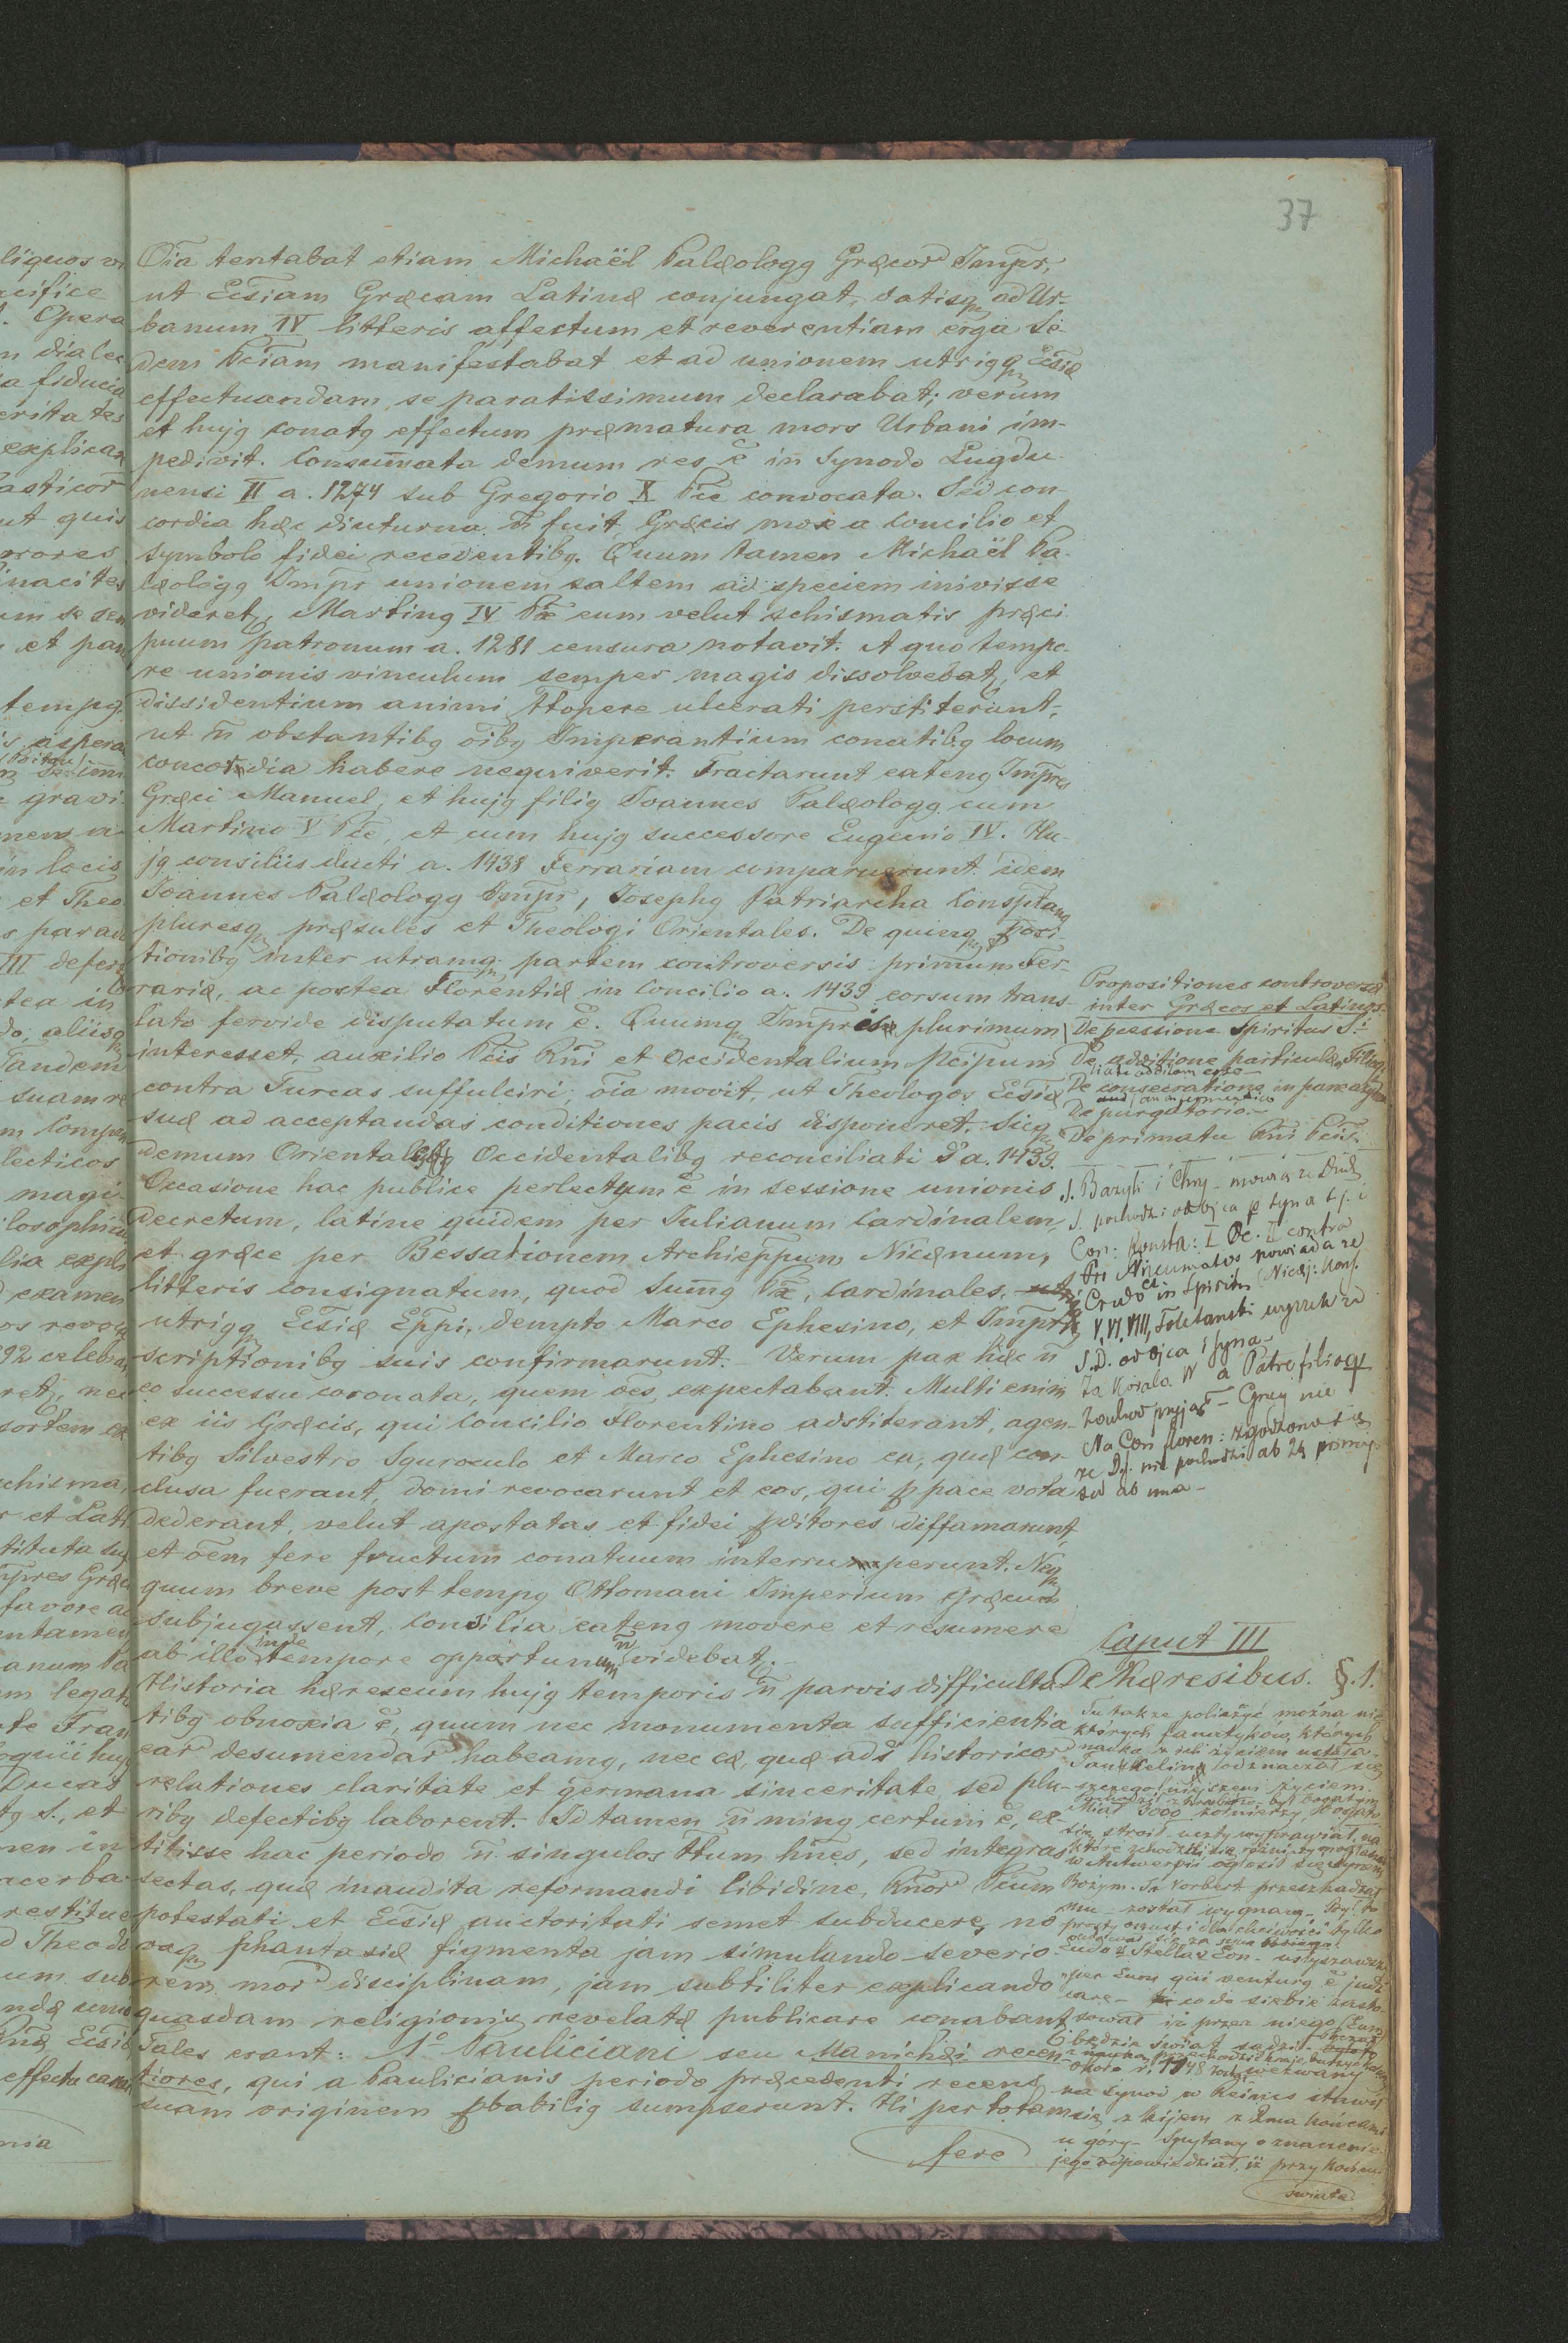 37
Oia tentabat etiam Michaël Palæologg Græcor Impr,
ut Ecsiam Græcam Latinæ conjungat, datisq ad Ur-
banum IV litteris affectum et reverentiam erga Se-
dem Pciam manifestabat et ad unionem utrigq Ecsiæ
effectuandam se paratissimum declarabat; verum
et hujg conatg effectum præmatura mors Urbani im-
pedivit. Consumata demum res ē in Synodo Lugdu-
nensi II a. 1274 sub Gregorio X Pce convocata. Sed con-
cordia hæc diuturna n̄ fuit, Græcis mox a Concilio et
symbolo fidei recedentibg. Quum tamen Michaël Pa-
læologg Impr unionem saltem ad speciem inivisse
videretg, Marting IV Px eum velut schismatis præci-
puum patronum a. 1281 censura notavit. A quo tempo-
re unionis vinculum semper magis dissolvebatg, et
dissidentium animi ttopere ulcerati perstiterunt,
ut n̄ obstantibg oibg Imperantium conatibg locum
concordia habere nequiverit. Tractarunt eateng Impres
Græci Manuel, et hujg filig Joannes Palæologg cum
Martino V Pce, et cum hujg successore Eugenio IV. Hu-
jg consiliis ducti a. 1438 Ferrariam comparuerunt idem
Joannes Palæologg Impr, Josephg Patriarcha Consptang
pluresq præsules et Theologi Orientales. De quinq posi-
tionibg inter utramq partem controversis primum Fer-
rariæ, ac postea Florentiæ in Concilio a. 1439 eorsum trans-
lato fervide disputatum ē. Quumq Impris plurimum
interesset, auxilio Pcis Rni et Occidentalium pcipum
contra Turcas suffulciri, oia movit, ut Theologos Ecsiæ
suæ ad acceptandas conditiones pacis disponeret. Sicq
demum Orientales Occidentalibg reconciliati st a. 1439.
Occasione hac publice perlectum ē in sessione unionis
Decretum, latine quidem per Julianum Cardinalem,
et græce per Bessationem Archieppum Nicænum,
litteris consignatum, quod Sumg Px, Cardinales,
utrigq Ecsiæ Eppi, dempto Marco Ephesino, et Impr
scriptionibg suis confirmarunt. Verum pax hæc n̄
eo successu coronata, quem oes expectabant. Multi enim
ex iis Græcis, qui Concilio Florentino adstiterant, agen-
tibg Silvestro Sguroculo et Marco Ephesino ea, quæ con-
clusa fuerant, domi revocarunt et eos, qui p pace vota
dederant, velut apostatas et fidei pditores diffamarunt,
et oem fere fructum conatuum interruperunt. Neq
quum breve post tempg Ottomani Imperium Græcum
subjugassent, consilia eateng movere et resumere
ab illo inde tempore opportunum n̄ videbatg.
Historia hæreseum hujg temporis n̄ parvis difficulta-
tibg obnoxia ē, quum nec monumenta sufficientia
ear desumendar habeamg, nec eæ, quæ adst historicor
relationes claritate et germana sinceritate, sed plu-
ribg defectibg laborent. Id tamen n̄ ming certum ē, ex-
titisse hac periodo n̄ singulos ttum hnes, sed integras
sectas, quæ inaudita reformandi libidine, Rnor Pcium
potestati et Ecsiæ auctoritati semet subducere, no-
vaq phantasiæ figmenta jam simulando severio-
rem mor disciplinam, jam subtiliter explicando
quasdam religionis revelatæ publicare conabantg
Tales erant: 1° Pauliciani seu Manichæi recen-
tiores, qui a Paulicianis periodo præcedenti recens
suam originem pbabilig sumpserunt. Hi per totam
fere
Propositiones controversæ
inter Græcos et Latinos
De pcessione Spiritus S.
De additione particulæ Filioq
De consecratione in pane azymo
De purgatorio
De primatu Rni Pcis.
S. Bazyli i Chry. mówią że Duch
S. pochodzi od ojca p syna t.j. i
Con: Konsta: I Oc. II contra
Credo et in Spiritu Nicæj: Kons.
V, VI, VIII, Toletanski wyrzekł że
S.D. od ojca i syna
Za Karola W a Patre filioq
Zachod przyjął – Grecy nie
Na Con floren: zgodzono się
że D.S. nie pochodzi ab 2g princip
sed ab uno
Caput III
De Hæresibus. §.1.
Tu także policzyć można nie
których fanatyków, których
nauka z ich życiem ustała.
Tankeling odznaczał się
szczególniejszem życiem.
Miał 3000 żołnierzy, bogato
się stroił, uczty wyprawiał, na
w Antwerpii ogłosił się synem
Bożym. Św Norbert przeszkadzał
mu – został wygnany. Był to
prosty oszust i dla chciwości tylko
Eudo z Stella v Eon – usłyszawszy
per Eum qui venturg ē judi
care – co do siebie zasto-
sował iż przez niego (Eum)
będzie świat sądzi –
około r. 1148 został wezwany
na synod w Reims stawił
się z kijem z 2ma końcami
u góry – Spytany o znaczenie
jego odpowiedział, iż przy końcu
świata